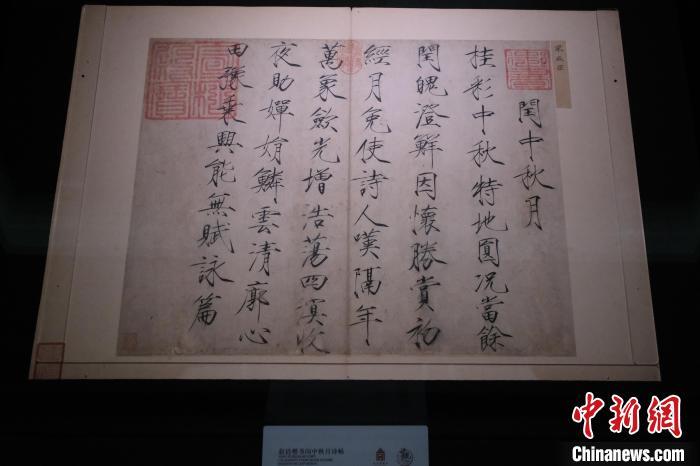 閏中秋月
桂彩中秋特地圓況當餘
閏魄澄鮮因懷勝賞初
經月免使詩人嘆隔年
萬象歛光增浩蕩四冥收
夜助嬋娟鱗雲清廓心
田豫乘興能無賦詠篇
赵佶楷书闰中秋月诗帖
中新网
www.chinanews.com